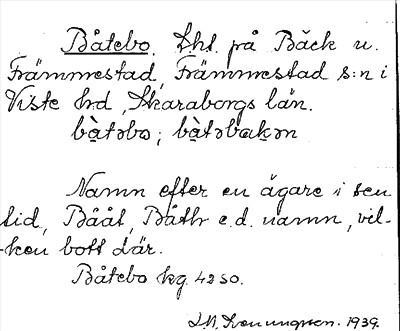 Båtebo. Lht. på Bäck u.
Främmestad, Främmestad s:n i
Viste hrd, Skaraborgs län.
bà̤təbo; bà̤təbakən
Namn efter en ägare i sen
tid, Bååt, Båth e.d. namn, vil-
ken bott där.
Båtebo kg. 4250.
1939.